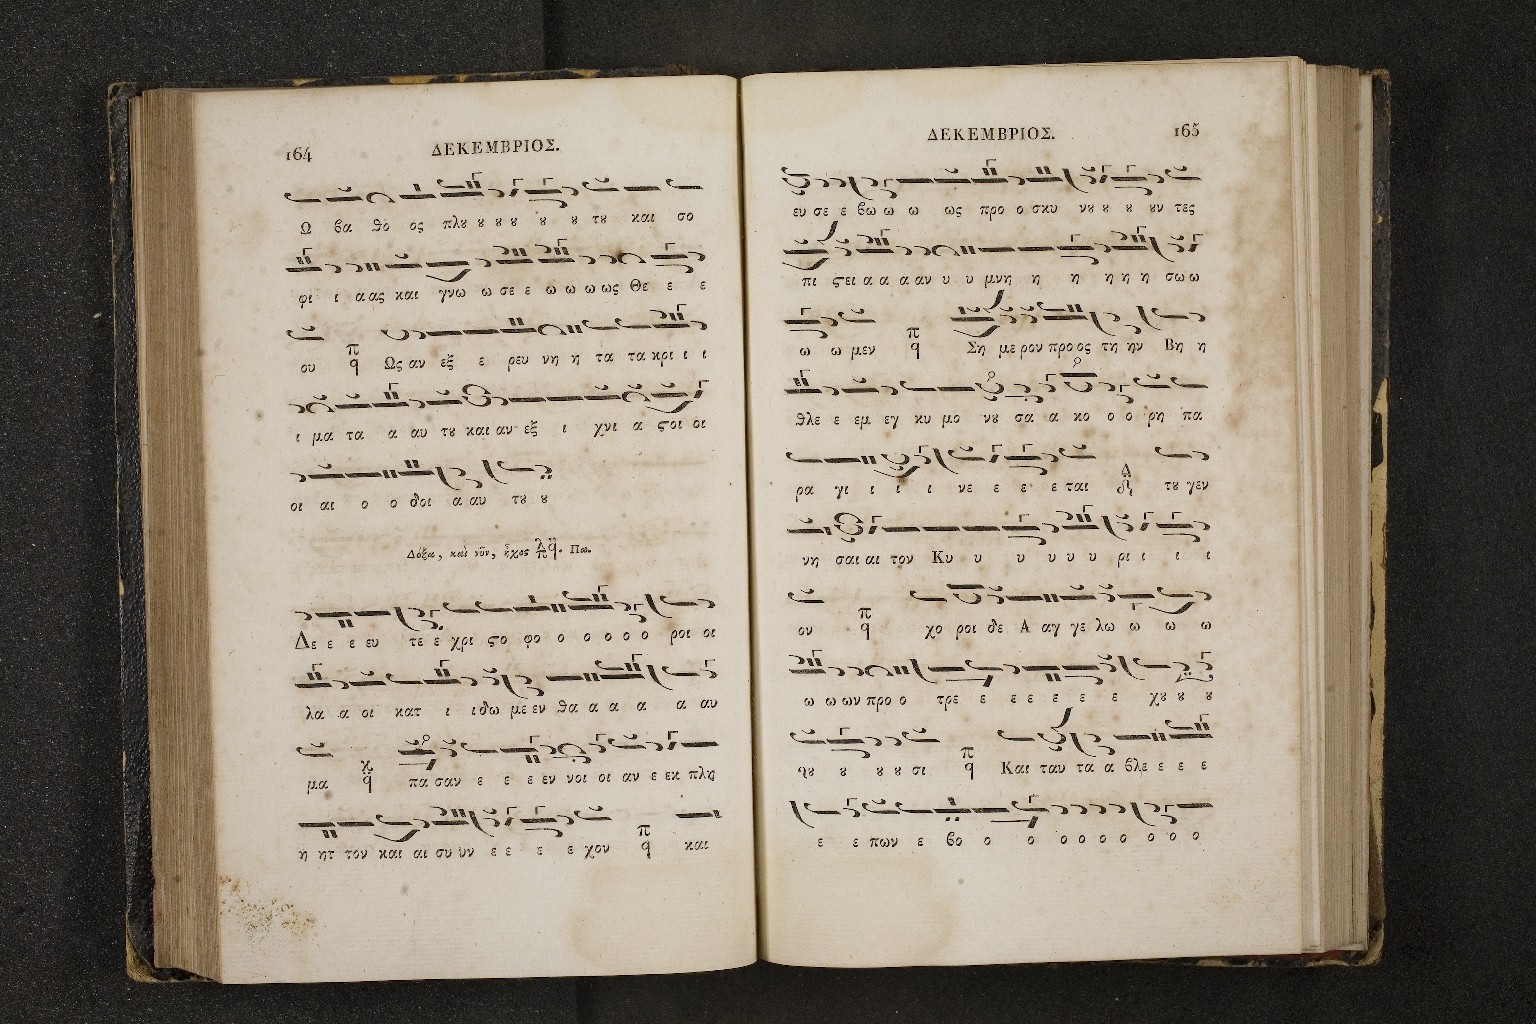 164 ΔΕΚΕΜΒΡΙΟΣ.
Ω βα θο ος πλȣ ȣ ȣ ȣ ȣ ȣ τȣ και σο
φι ι α ας και γνω ω σε ε ω ω ω ως Θε ε ε
ου π q Ως αν εξ ε ρευ νη η τα τα κρι ι ι
ι μα τα α αυ τȣ και αν εξ ι χνι α ϛοι οι
οι αι ο ο δοι α αυ τȣ ȣ
Δόξα, καὶ νῦν, ἦχος λ π q. Πα.
Δε ε ε ευ τε ε χρι ϛο φο ο ο ο ο ο ροι οι
λα α οι κατ ι ι δω με εν θα α α α α αυ
μα κ q πα σαν ε ε ε εν νοι οι αν ε εκ πλη
η ητ τον και αι συ υν ε ε ε ε χον π q και
ΔΕΚΕΜΒΡΙΟΣ. 165
ευ σε ε βω ω ω ως προ ο σκυ νȣ ȣ ȣ ȣν τες
πι ϛει α α α αν υ υ μνη η η η η η σω ω
ω ω μεν π q Ση με ρον προ ος τη ην Βη η
θλε ε εμ εγ κυ μο νȣ σα α κο ο ο ρη πα
ρα γι ι ι ι νε ε ε ε ται Δ τȣ γεν
νη σαι αι τον Κυ υ υ υ υ υ ρι ι ι ι
ον π q χο ροι δε Α αγ γε λω ω ω ω
ω ω ων προ ο τρε ε ε ε ε ε ε χȣ ȣ ȣ
ȣ ȣ ȣ ȣ σι π q Και ταυ τα α βλε ε ε ε
ε ε πων ε βο ο ο ο ο ο ο ο ο ο